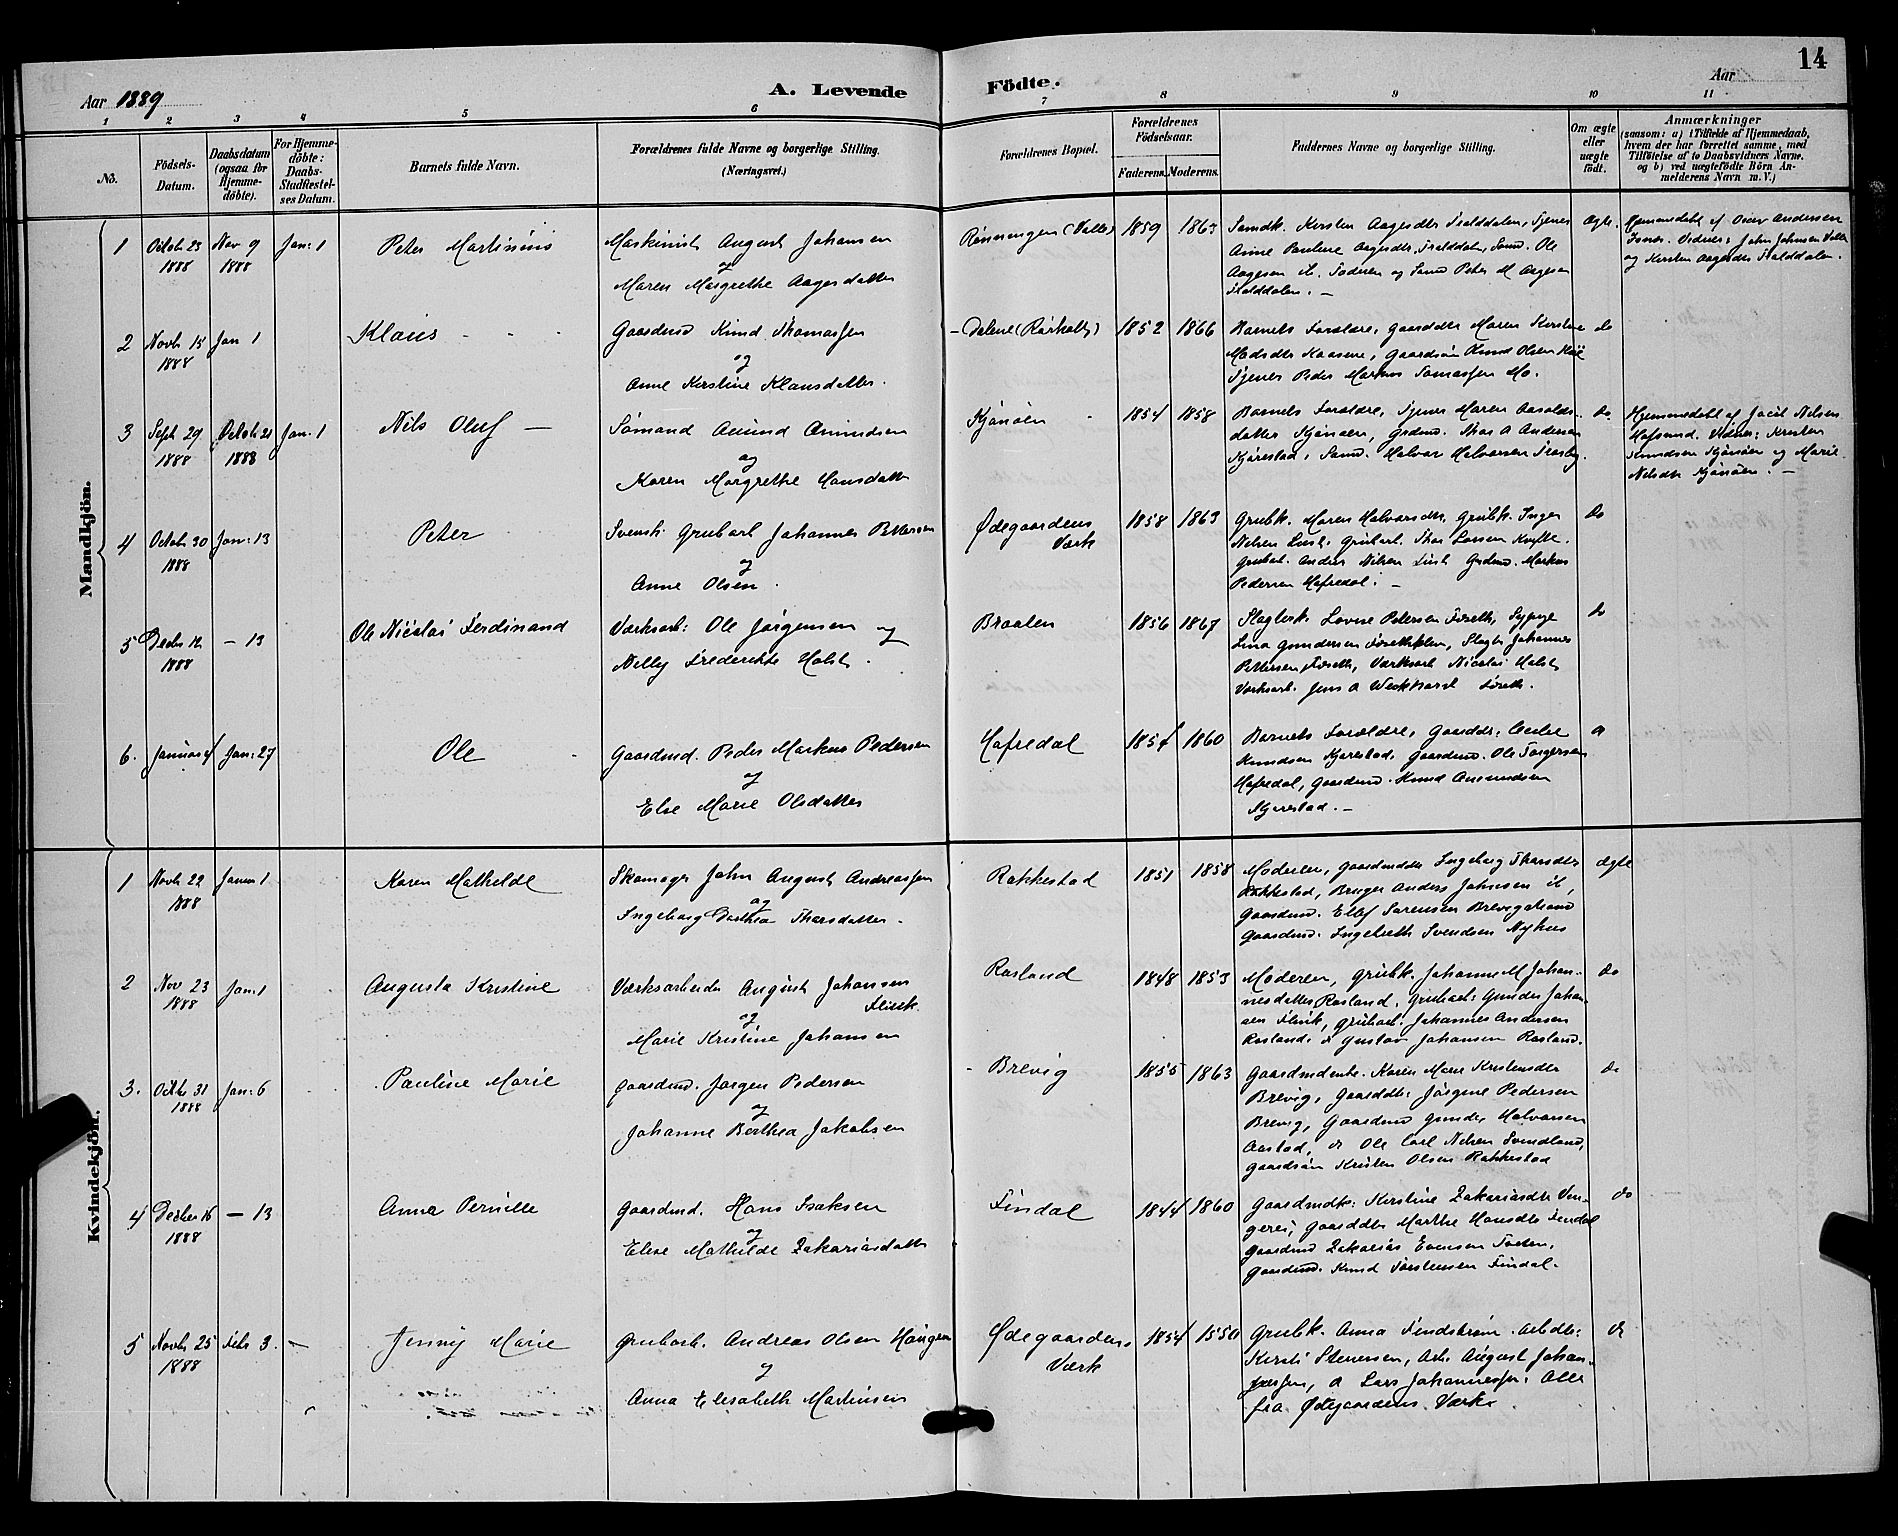 14
Aar 1889
A. Levende
Födte.
Aar
1 2 3 4 5 6 7 8 9 10 11
No.
Födsels-Datum.
Daabsdatum (ogsaa for Hjemme-döbte).
For Hjemme-döbte: Daabs-Stadfæstel-ses Datum.
Barnets fulde Navn.
Forældrenes fulde Navne og borgerlige Stilling. (Næringsvei.)
Forældrenes Bopæl.
Forældrenes Födselsaar.
Faderens. Moderens.
Faddernes Navne og borgerlige Stilling.
Om ægte eller uægte födt.
Anmærkninger
(saasom: a) i Tilfælde af Hjemmedaab, hvem der har forrettet samme, med Tilföielse af to Daabsvidners Navne, og b) ved uægtefödte Börn An-melderens Navn m. V.)
Mandkjön.
1 Octob 23 1888 Nov 9 1888 Jan: 1
Peter Martinius
Maskinist August Johansen
og
Maren Margrethe Aagesdatter
Rønningen (Valle) 1859 1863
Aagesen
Ægte.
Hjemmedøbt af
Vidner: John Johnsen Valle
og Kirsten Aagesdtr
2 Novb 15 1888 Jan 1
Klaus
Gaardmd Knud Thomassen
og
Anne Kirstine Klausdatter.
Dalene 1852 1866
Barnets Forældre, Gaarddtr Maren Kirstine
Tjener Peder Markus Tomassen Mo.
do
3 Sept 29 1888 Octob 21 1888 Jan: 1
Nils Oluf
Sømand Amund Amundsen
og
Karen Margrethe Hansdatter
Kjønøen 1854 1858
Barnets Forældre, Tjener Maren
datter Kjønøen, Grdmd. Thor A Andersen
Kjørestad, Sømd. Halvor Halvorsen Trosby.
do
Hjemmedøbt af Jacob Nilsen
Hafsund. Vidner: Kirsten
Knudsen Kjønøen og Marie
Nilsdtr Kjønøen.
4 Octob 30 1888 Jan: 13
Peter
Svensk Grubarb Johannes Pettersen
og
Anne Olsen.
Ødegaardens
Værk
1858 1863
Grubk. Maren Halvorsdtr, Grubk. Inger
Nilsen Lind, Grubarb. Thor Larsen
Grubarb. Anders Nilsen Lind Grdmd. Markus
Pedersen Hafredal.
do
5 Decbr 12 1888 - 13
Ole Nicolai Ferdinand
Værksarb: Ole Jørgensen og
Nelly Frederikke Holst.
Braaten 1856 1867
Slagterk. Lovise Petersen Føseth, Sypige
Lina Gundersen, Slagter Johannes
Pettersen Føseth, Værksarb Nicolai Holst
Værksarb. Jens A Føseth.
do
6. Januar 4 Jan: 27
Ole
Gaardmd. Peder Markus Pedersen
og
Else Marie Olsdatter
Hafredal 1854 1860
Barnets Forældre, Gaarddtr.
Knudsen Kjørestad, Gaardmd. Ole Torgersen
Hafredal, Gaardmd. Knud Amundsen
Kjørestad.
Kvindekjön.
1 Novb 22 1888 Januar 1
Karen Mathilde
Skomager John August Andreassen
og
Ingeborg Dorthea Thorsdatter.
Rakkestad 1851 1858
Moderen, Gaardmdtr Ingeborg Thorsdtr
Rakkestad, Bruger Anders Johnsen
Gaardmd. Elef Sørensen Brevigstrand
Gaardmd. Ingebreth Svendsen Nyhus
ægte
2 Nov 23 1888 Jan: 1
Augusta Kristine
Værksarbeider August Johansen
Flink
og
Marie Kristine Johansen
Rosland 1848 1853
Moderen, Grubk. Johanne M Johan-
nesdatter Rosland, Grubarb: Gunder Johan-
sen Flink, Grubarb. Johannes Andersen
Rosland. & Gustav Johansen Rosland.
do
3. Octbr 31 1888 Jan: 6
Pauline Marie
Gaardmd. Jørgen Pedersen
og
Johanne Berthea Jakobsen
Brevig 1855 1863
Gaardmdenke. Karen Marie Kristensdtr
Brevig, Gaarddtr: Jørgine Pedersen
Brevig, Gaardmd Gunder Halvorsen
Aastad, & Ole Carl Nilsen Svindland,
Gaardsøn Kristen Olsen Rakkestad
do
4 Decbr 16 1888 - 13
Anna Pernille
Gaardmd. Hans Isaksen
og
Elise Mathilde Zakariasdatter
Findal 1844 1860
Gaardmdk: Kirstine Zakariasdtr Van-
geres, Gaarddtr Marthe Hansdtr Findal
Gaardmd Zakarias Evensen Tveten,
Gaardmd. Knud Torstensen Findal.
do
5 Novb 25 1888 Febr 3. -
Jenny Marie
Grubarb. Andreas Olsen Haugen
og
Anna Elisabeth Martinsen
Ødegaardens
Værk
1854 1550
Grubk. Anna Findstrøm. Arbdtr:
Kirsti Stenersen, Arb. August Johan-
nessen, & Lars Johannessen. Alle
fra Ødegaardens Værk.
do